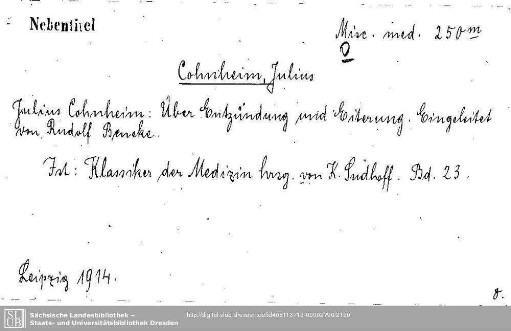 Nebentitel
Misc. med. 250m
Cohnheim, Julius
Julius Cohnheim: Über Entzündung und Eiterung. Eingeleitet
von Rudolf Beneke.
Ist: Klassiker der Medizin hrsg. von K. Sudhoff. Bd. 23.
Leipzig 1914.
Sächsische Landesbibliothek –
Staats- und Universitätsbibliothek Dresden